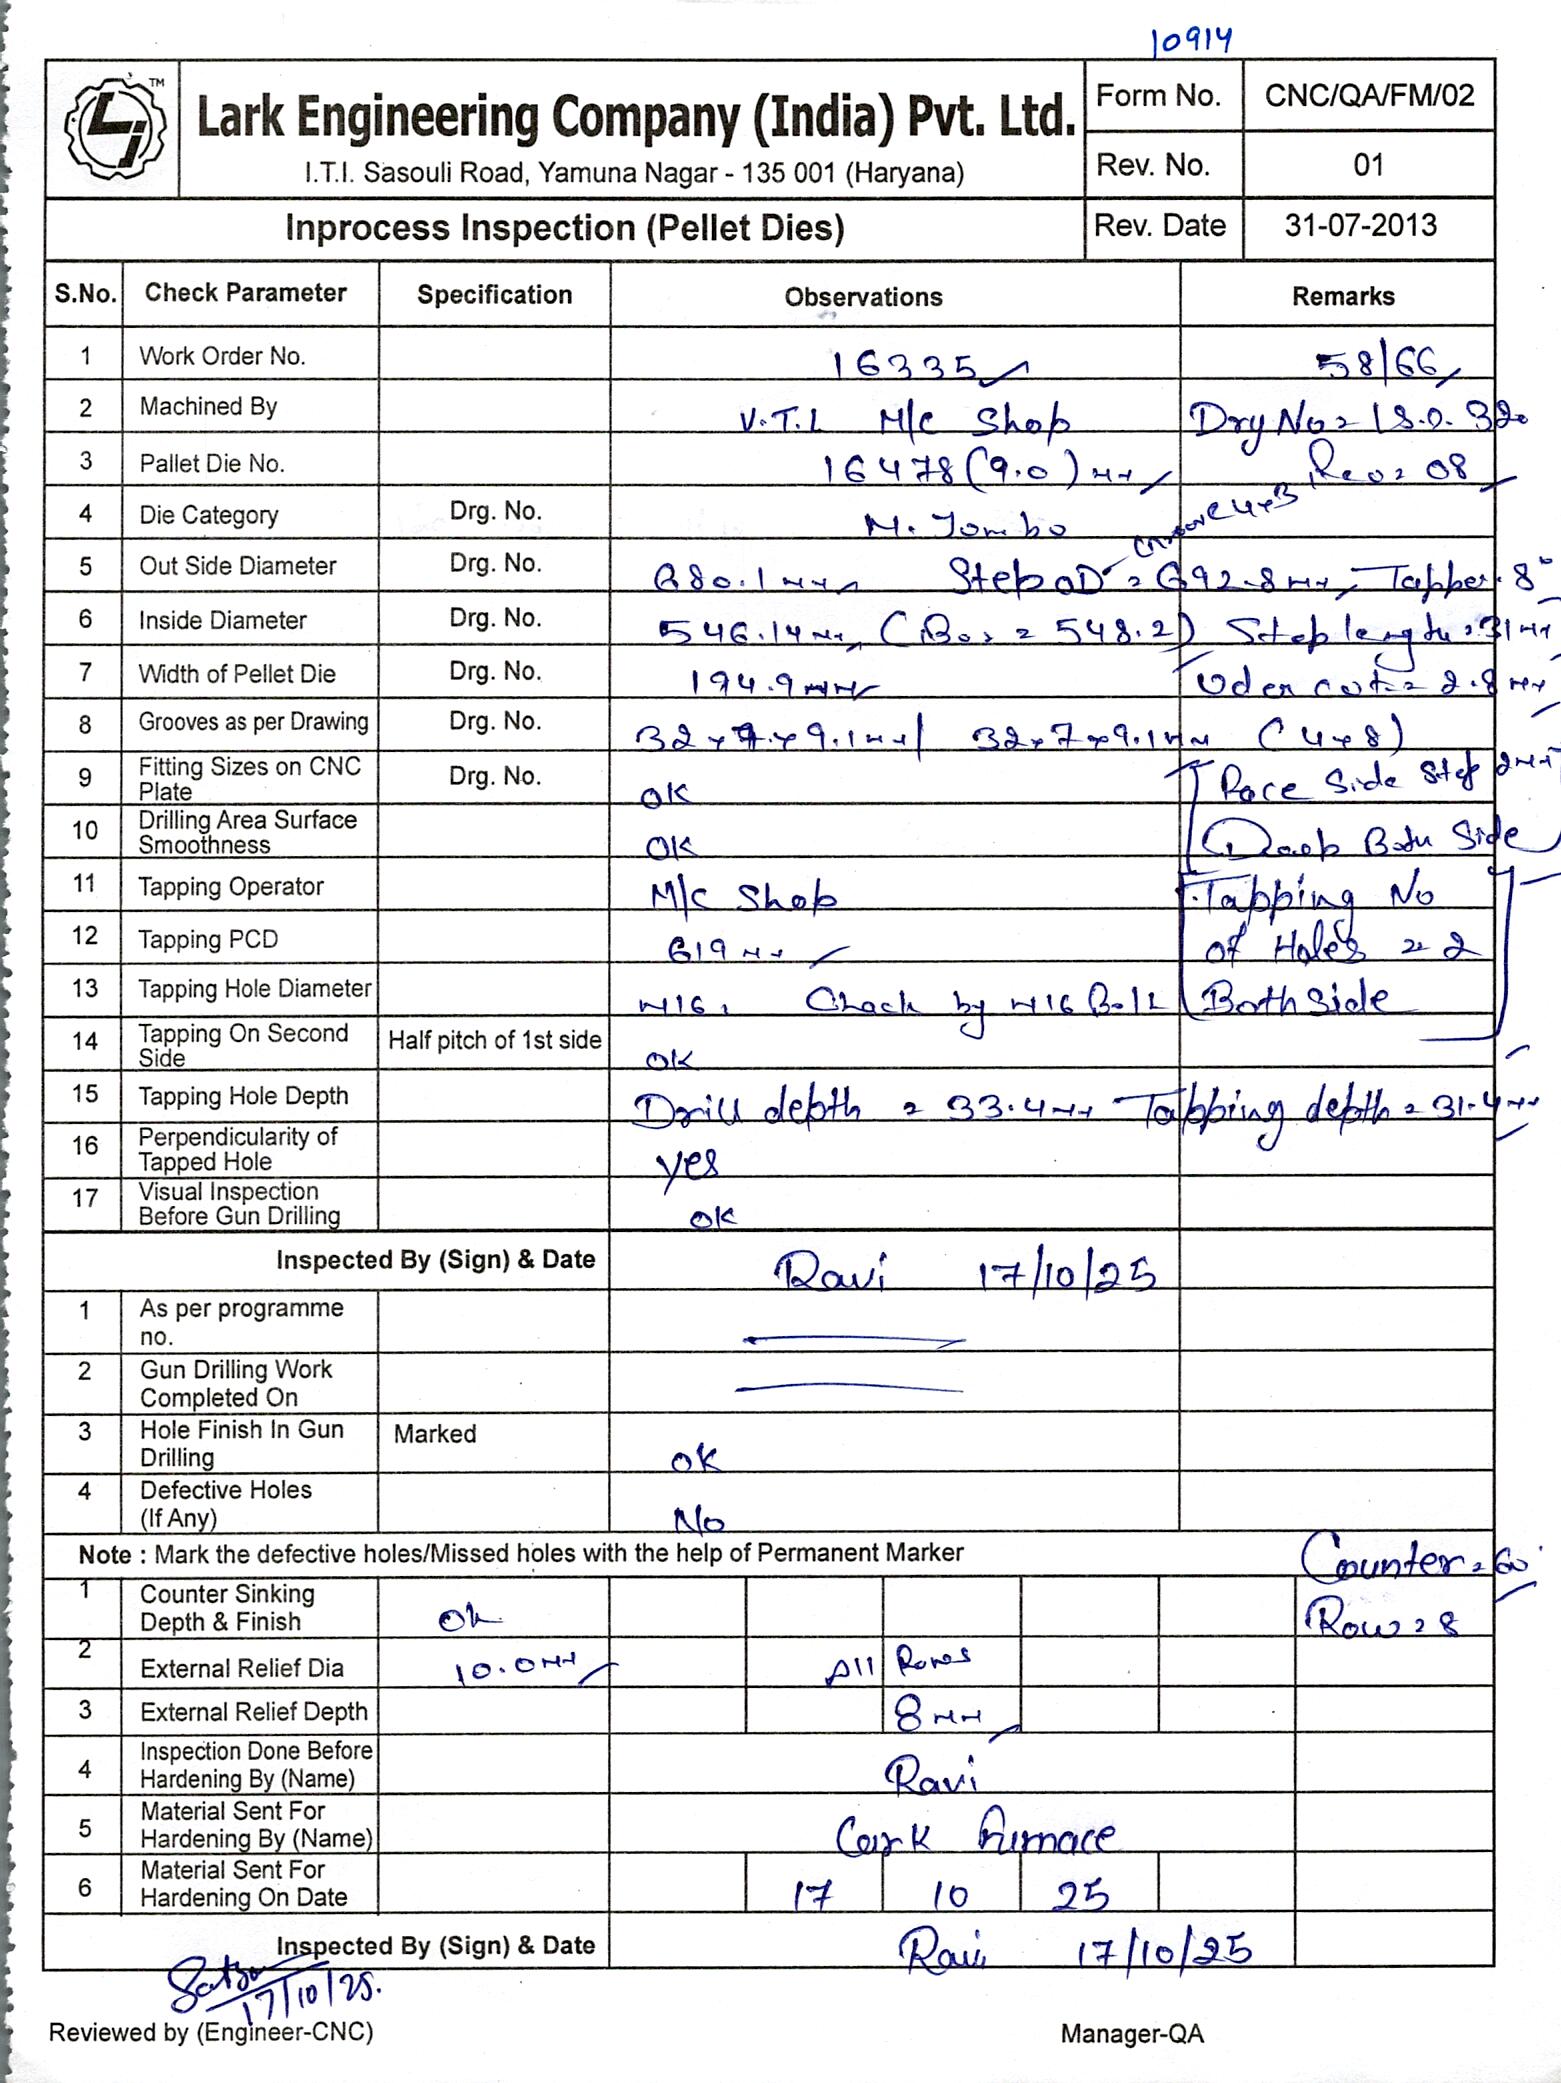 10914
TM
Lark Engineering Company (India) Pvt. Ltd.
I.T.I. Sasouli Road, Yamuna Nagar - 135 001 (Haryana)
Form No. CNC/QA/FM/02
Rev. No. 01
Inprocess Inspection (Pellet Dies) Rev. Date 31-07-2013
S.No. Check Parameter Specification Observations Remarks
1 Work Order No. 16335 58/66
2 Machined By V.T.L M/C Shop
3 Pallet Die No. 16478 (9.0) Rev = 08
4 Die Category Drg. No. M. Jombo
5 Out Side Diameter Drg. No. 680.1 Step OD = 692.8 Tapper. 8°
6 Inside Diameter Drg. No. 546.14 = 548.2) Step length = 31
7 Width of Pellet Die Drg. No. 194.9 mm cut = 2.8
8 Grooves as per Drawing Drg. No. 32 x 7 x 9.1 / 32 x 7 x 9.1 (4x8)
9 Fitting Sizes on CNC Plate Drg. No. OK Side Step
10 Drilling Area Surface Smoothness OK Both Side
11 Tapping Operator M/C Shop Tapping No
12 Tapping PCD 619 of Holes = 2
13 Tapping Hole Diameter M16, Check by M16 Bolt Both Side
14 Tapping On Second Side Half pitch of 1st side OK
15 Tapping Hole Depth Drill depth = 33.4 Tapping depth = 31.4
16 Perpendicularity of Tapped Hole yes
17 Visual Inspection Before Gun Drilling OK
Inspected By (Sign) & Date Ravi 17/10/25
1 As per programme no.
2 Gun Drilling Work Completed On
3 Hole Finish In Gun Drilling Marked OK
4 Defective Holes (If Any) No
Note : Mark the defective holes/Missed holes with the help of Permanent Marker Counter = 60°
1 Counter Sinking Depth & Finish Ok Row = 8
2 External Relief Dia 10.0 All Rows
3 External Relief Depth 8
4 Inspection Done Before Hardening By (Name) Ravi
5 Material Sent For Hardening By (Name) Furnace
6 Material Sent For Hardening On Date 17 10 25
Inspected By (Sign) & Date Ravi 17/10/25
17/10/25.
Reviewed by (Engineer-CNC) Manager-QA